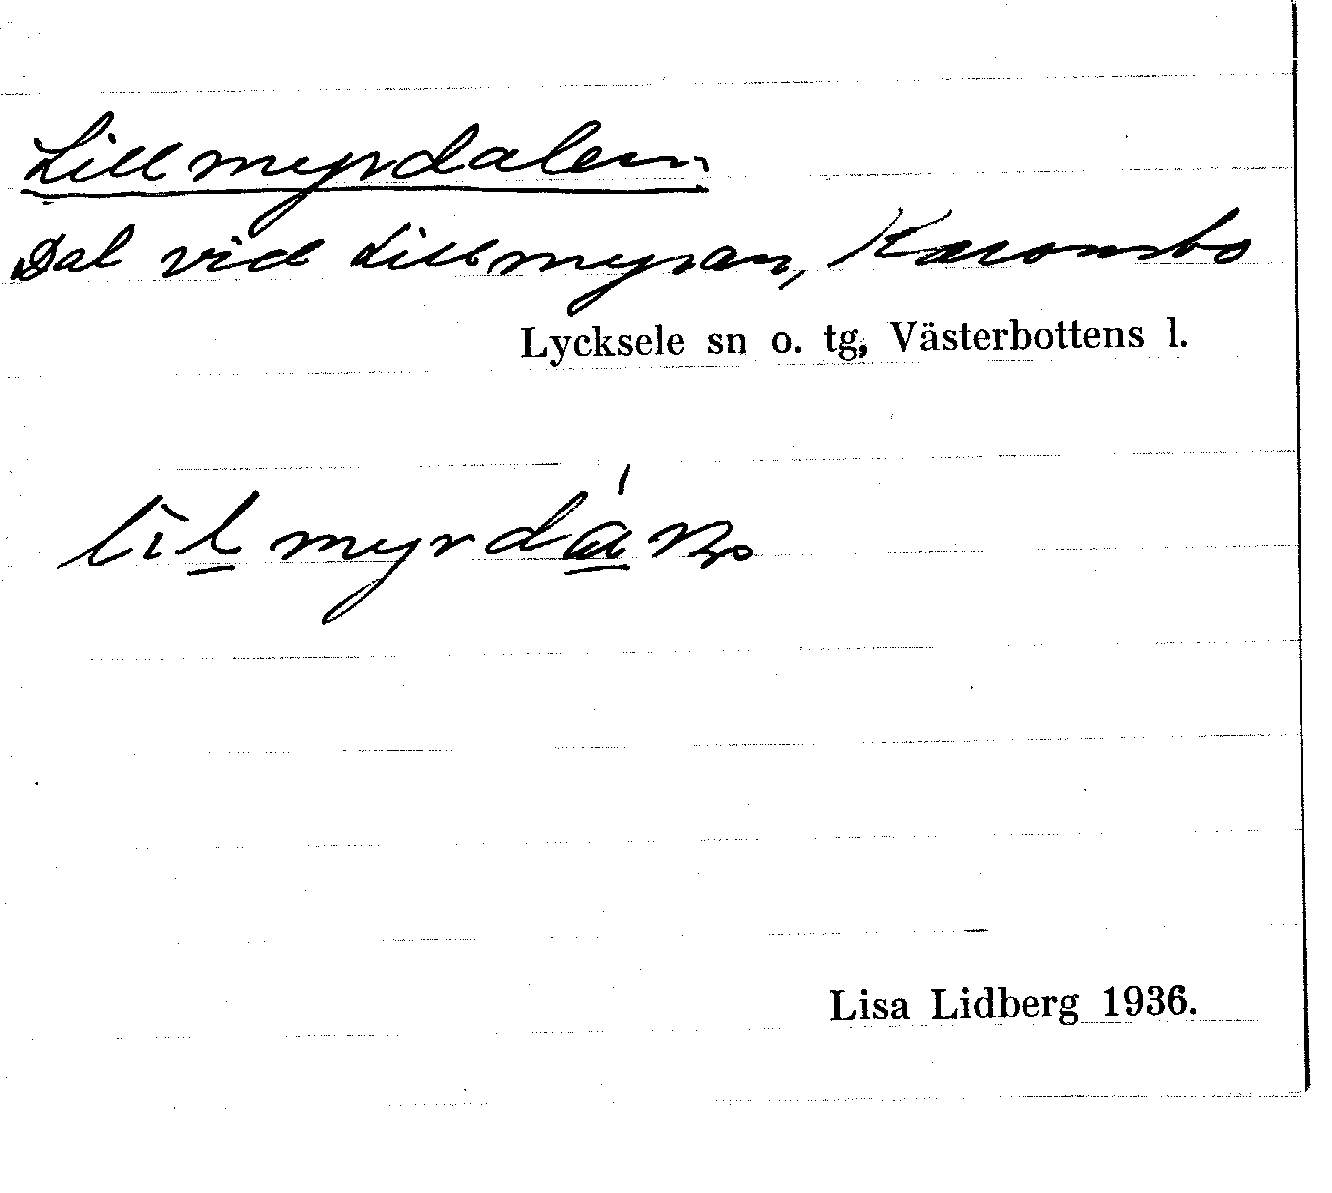 Lillmyrdalen.
Dal vid Lillmyran,
Lycksele sn o. tg, Västerbottens l.
Lisa Lidberg 1936.